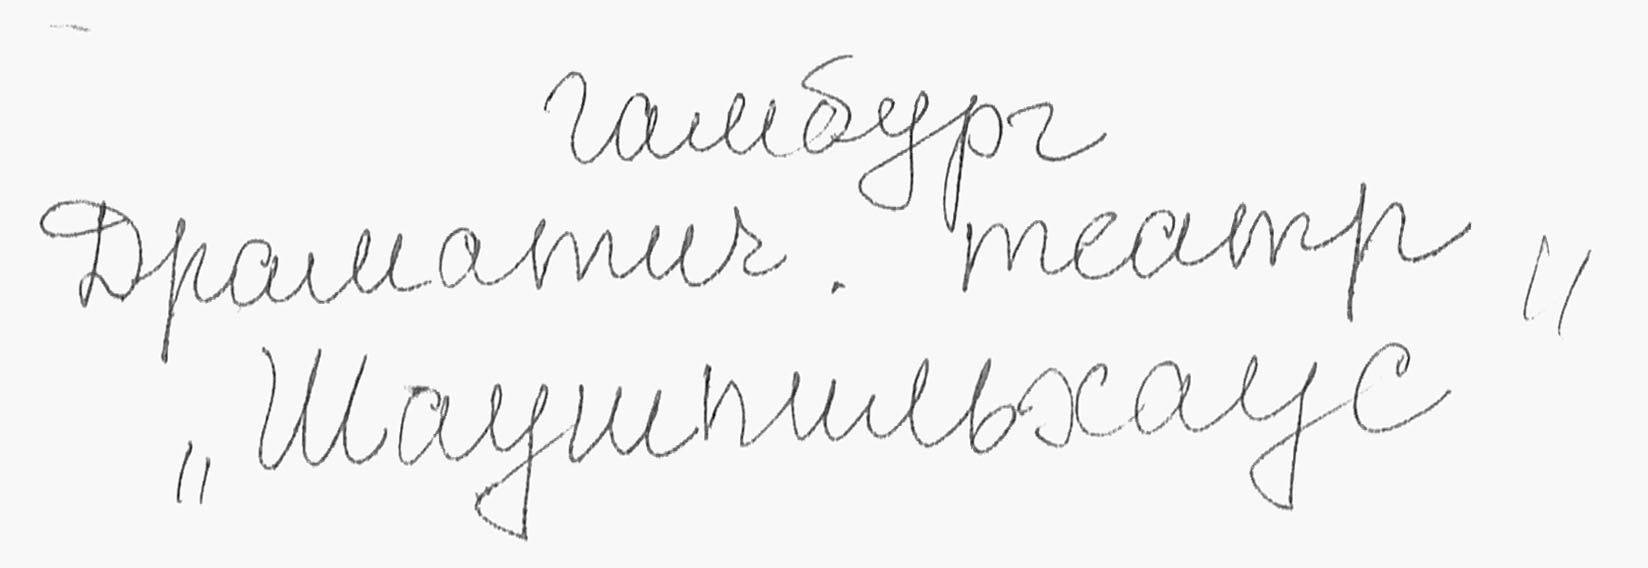 гамбург
Драматич. театр
„Шаушпильхаус"